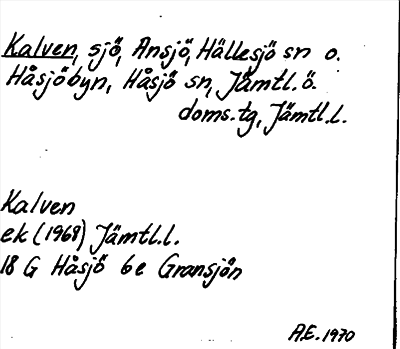 Kalven, sjö, Ansjö, Hällesjö sn o.
Håsjöbyn, Håsjö sn, Jämtl. ö.
doms.tg, Jämtl.l.
Kalven
ek (1968) Jämtl.l.
18 G Håsjö 6e Gransjön
A.E. 1970